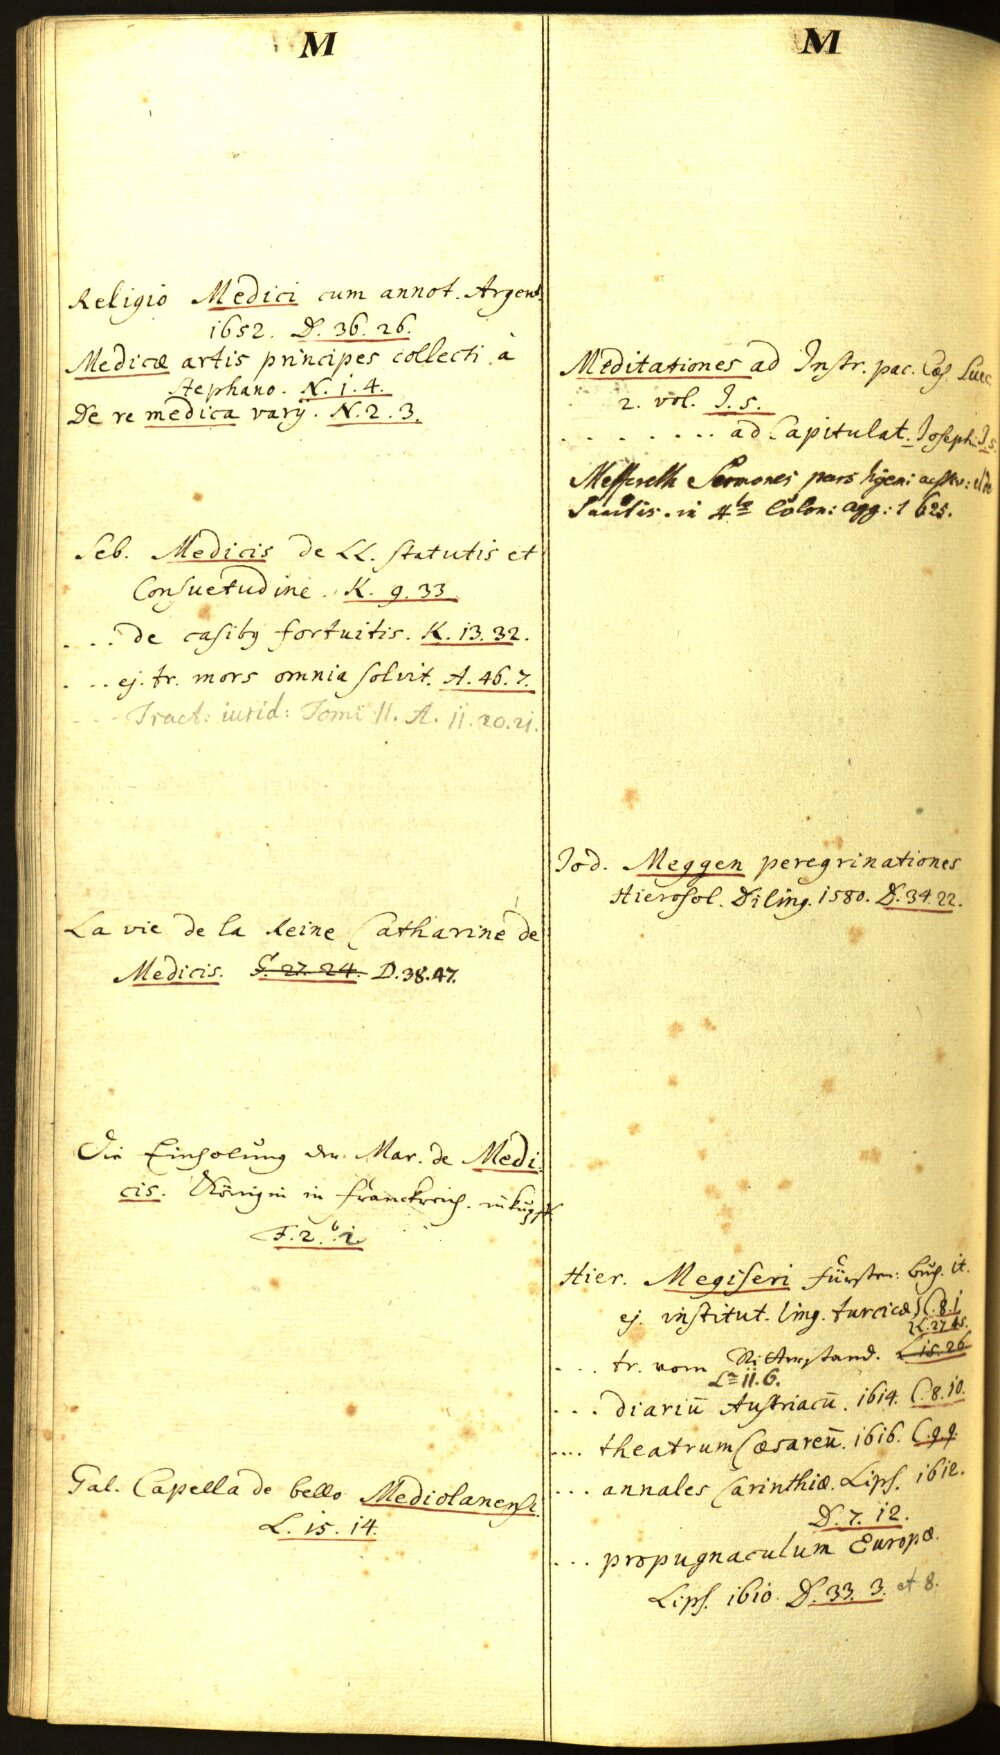 M
Religio Medici cum annot. Argent.
1652. D. 36. 26.
Medicæ artis principes collecti à
Stephano. N. 1. 4.
De re medica varij. N. 2. 3.
Seb. Medicis de LL. statutis et
Consuetudine. K. 9. 33
... de casibq fortuitis. K. 13. 32.
... ej. tr. mors omnia solvit. A. 46. 7.
... Tract: iurid: Tomi II. A. 11. 20. 21.
La vie de la Reine Catharine de
Medicis. G. 27. 24. D. 38. 47.
Die Einholung der Mar. de Medi
cis. Königin in Franckreich.
F. 2. b. 1.
Gal. Capella de bello Mediolanensi.
L. 15. 14.
M
Meditationes ad Instr. pac. Cæs. Suec
2. vol. J. 5.
........ ad Capitulat. Joseph. J. 5.
Meffreth Sermones pars
in 4to Colon: agg: 1625.
Jod. Meggen peregrinationes
Hierosol. Diling. 1580. D. 34. 22.
Hier. Megiseri Fürsten: buch. it.
ej. institut. ling. turcicæ C. 8. 1
L. 27. 45.
... tr. vom Ritterstand. L 15. 26
L= 11. 6.
... diariū Austriacū. 1614. C. 8. 10.
.... theatrum Cæsareū. 1616. C. 9. 9.
... annales Carinthiæ. Lips. 1612.
D. 7. 12.
... propugnaculum Europæ.
Lips. 1610. D. 33. 3. et 8.